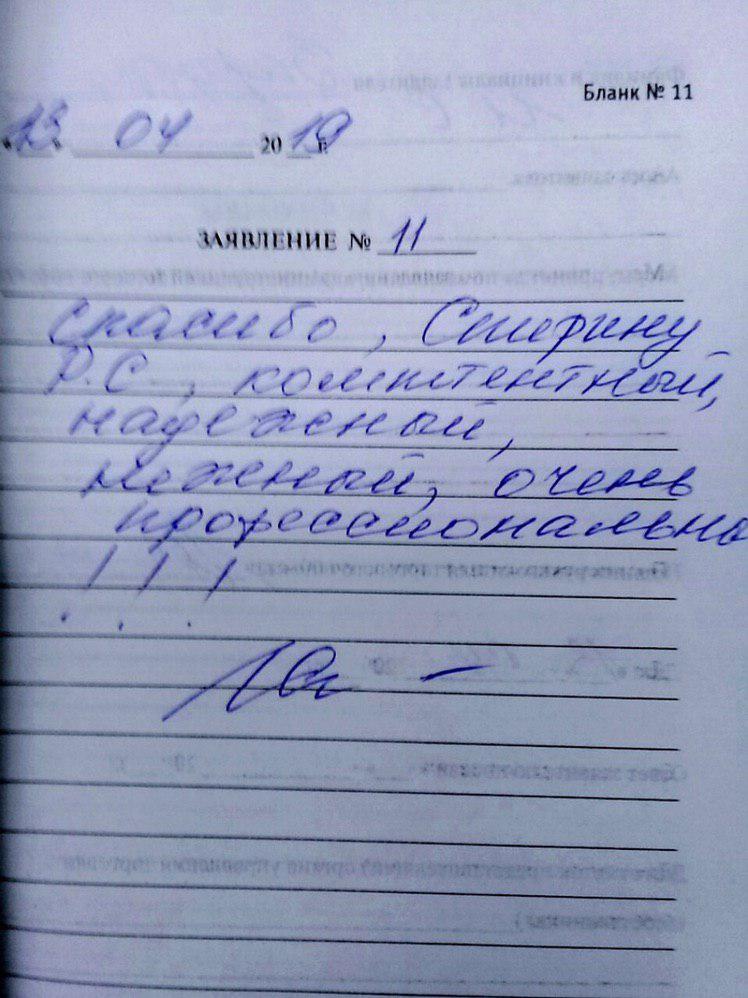 Бланк № 11
«23» 04 2019 г.
ЗАЯВЛЕНИЕ № 11
спасибо, Спирину
Р.С, компетентный,
надежный,
нежный, очень
профессионально
!!!